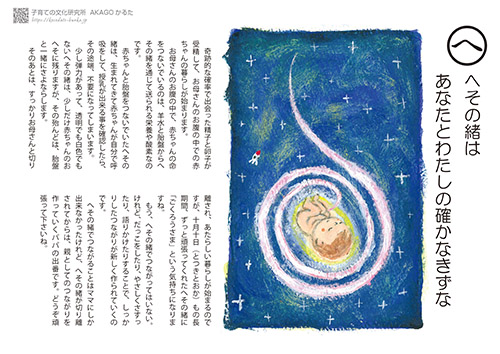 子育ての文化研究所 AKAGO かるた
https://kosodate-bunka.jp/
へ
へその緒は
あなたとわたしの確かなきずな
奇跡的な確率で出会った精子と卵子が
受精して、お母さんのお腹の中での赤
ちゃんの暮らしが始まります。
お母さんのお腹の中で、赤ちゃんの命
をつないでいるのは、羊水と胎盤からへ
その緒を通じて送られる栄養や酸素なの
です。
赤ちゃんと胎盤をつないでいたへその
緒は、生まれてきて赤ちゃんが自分で呼
吸をして、授乳が出来る事を確認したら、
その途端、不要になってしまいます。
少し弾力があって、透明でも白色でも
ないへその緒は、少しだけ赤ちゃんのお
へそに残りますが、その殆んどは、胎盤
と一緒にさよならします。
そのあとは、すっかりお母さんと切り
離され、あたらしい暮らしが始まるので
すが、十月十日（とつきとおか）もの長
期間、ずっと頑張ってくれたへその緒に
「ごくろうさま」という気持ちになりま
すね。
もう、へその緒でつながってはいない
けれど、だっこをしたり、やさしくさすっ
たり、語りかけたりすることで、しっか
りしたつながりが新しく作られていくの
です。
へその緒でつながることはママにしか
出来なかったけれど、へその緒が切り離
されてからは、親としてのつながりを
作っていくパパの出番です。どうぞ頑
張って下さいね。